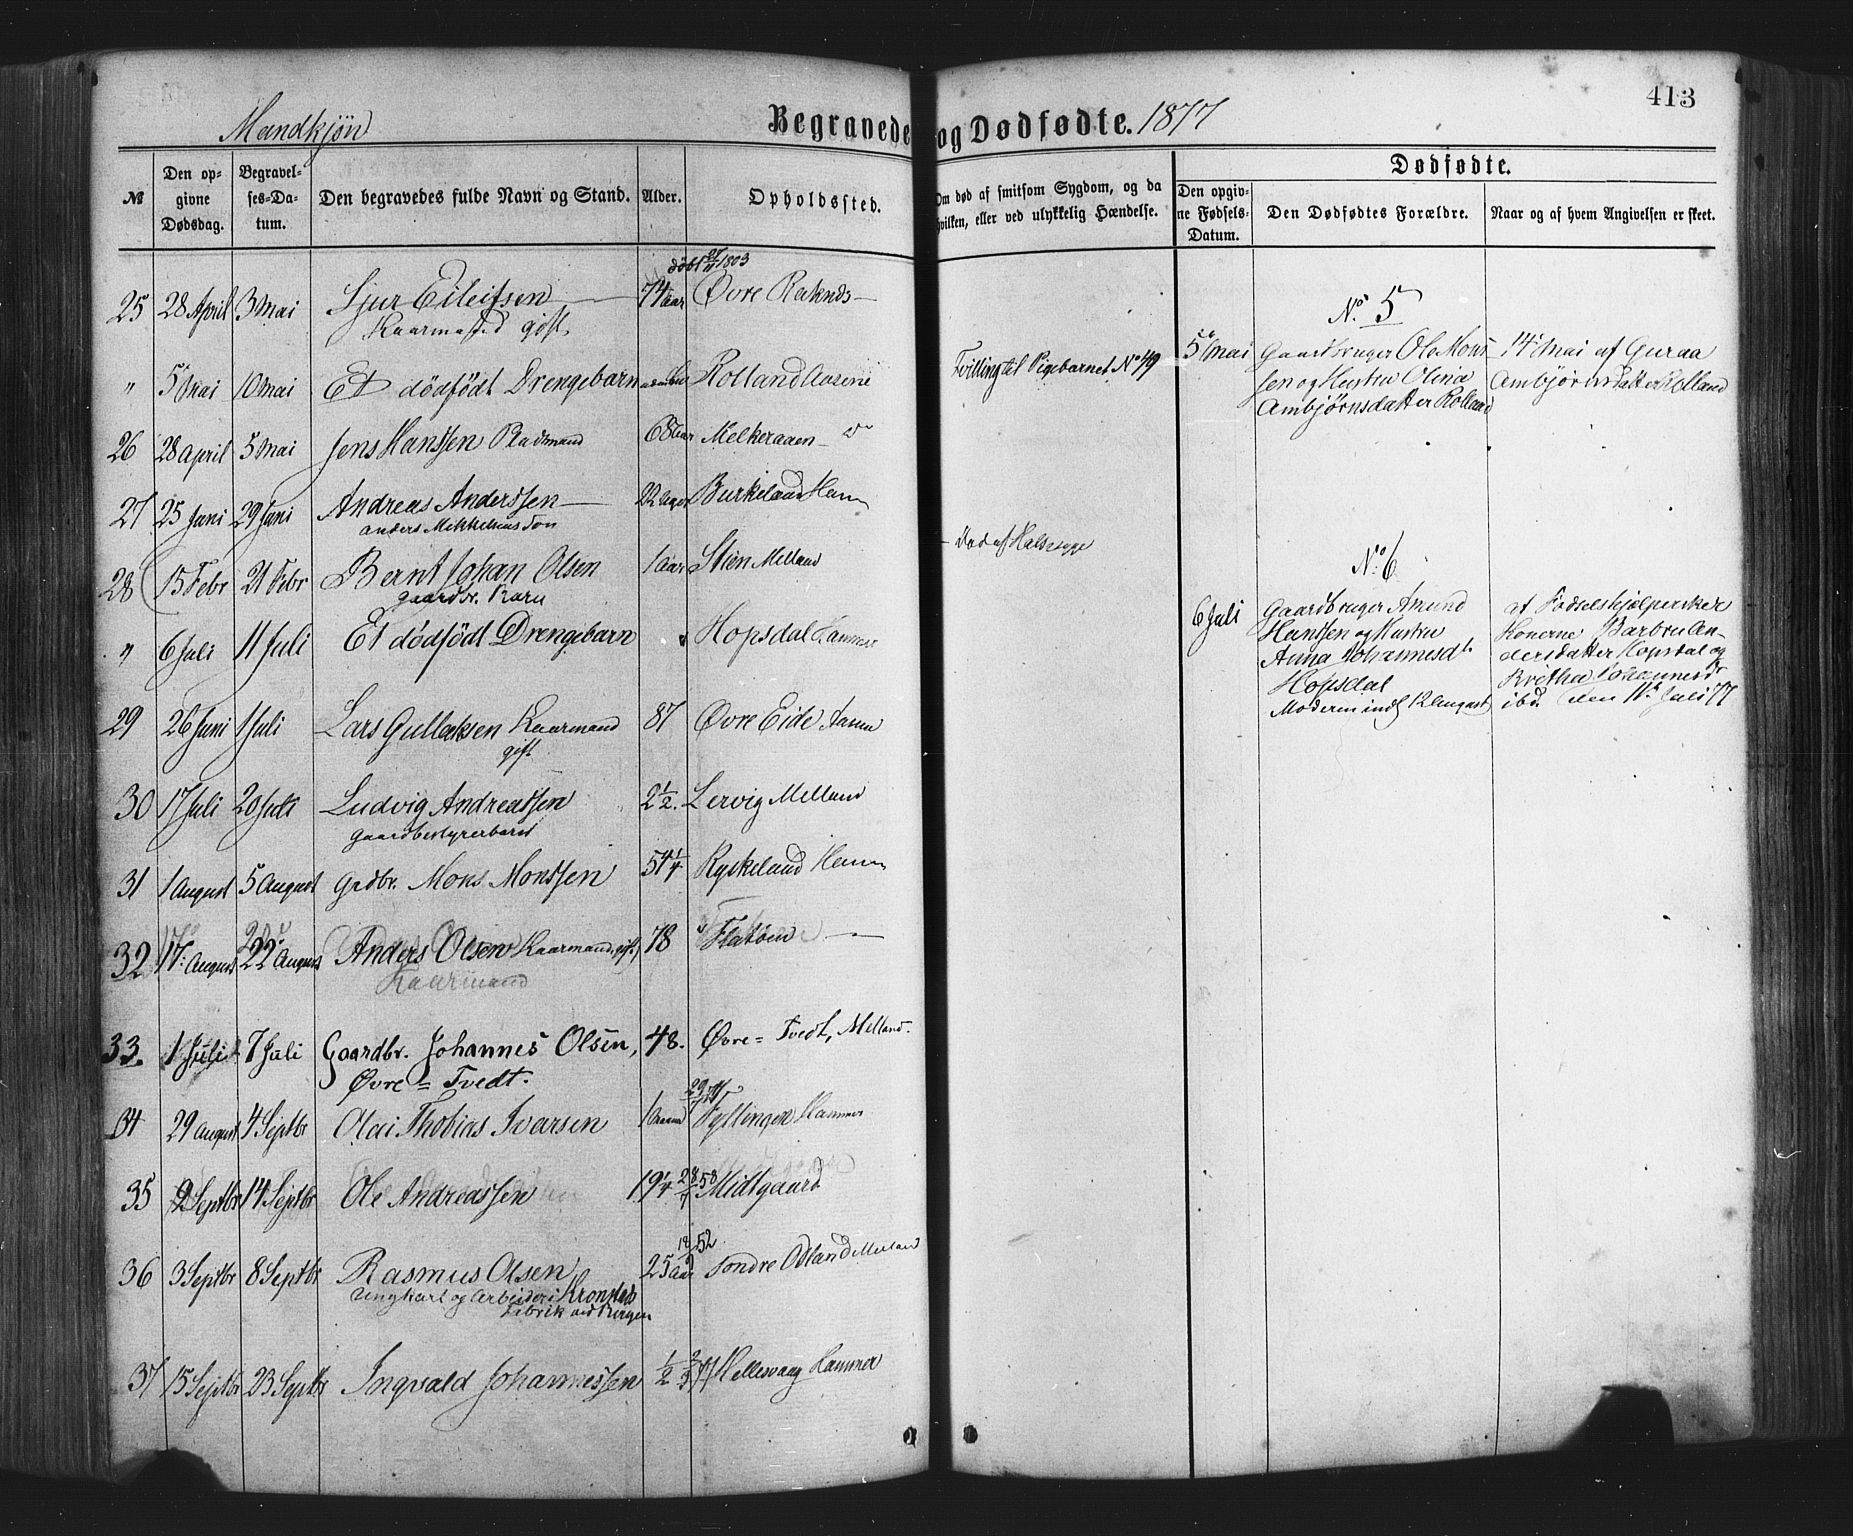 413
Mandkjøn
Begravede og Dødfødte. 1877
Dødfødte.
№
Den op-
givne
Dødsdag.
Begravel-
ses-Da-
tum.
Den begravedes fulde Navn og Stand.
Alder.
Opholdssted.
Om død af smitsom Sygdom, og da
hvilken, eller ved ulykkelig Hændelse.
Den opgiv-
ne Fødsels-
Datum.
Den Dødfødtes Forældre.
Naar og af hvem Angivelsen er skeet.
døbt 1803
25 28 April 3 Mai Sjur Eileifsen 74 aar Øvre
Kaarmand gift
No. 5
" 5 Mai 10 Mai Et dödfödt Drengebarn Rolland Aasene Tvilling til Pigebarnet No 49
5 Mai Gaardbruger Ole Mons
sen og Hustru Olina
Ambjørnsdatter Rolland
14 Mai af Guraa
Ambjørnsdatter Rolland
26 28 April 5 Mai Jens Hanssen 68 aar Melkeraaen
27 25 Juni 29 Juni Andreas Anderssen 22 Uger Burkeland Ham
anders Mikkelsens Søn
28 15 Febr 21 Febr Bernt Johan Olsen 1 aar Stien Melland Død af Halssyge
gaardbr. Barn
No. 6
" 6 Juli 11 Juli Et dödfödt Drengebarn Hopsdal Hammer
6 Juli Gaardbruger Amund
Hanssen og Hustru
Anna Johannesdt
Hopsdal
Moderen indl 12 August
af Fødselshjælpersker
Konerne Barbru An-
dersdatter Hopsdal og
Britha Johannesd
ibd. den 11 Juli 77
29 26 Juni 1 Juli Lars Gullaksen Kaarmand 87 Øvre Eide
gift
30 17 Juli 20 Juli Ludvig Andreassen 2 1/2. Lervig Melland
gaardbestyrerbarn
31 1 August 5 August Grdbr. Mons Monssen 54 1/4 Ryskeland Ham
32 17. August 22 August Anders Olsen Kaarmand, gift 78 Flatøen
Kaarmand
33. 1 Juli 7 Juli Gaardbr. Johannes Olsen, 48. Øvre = Tvedt, Melland.
Øvre = Tvedt.
34 29 August 4 Septbr Olai Thobias Iversen 1 Fyllingen Hammer
35 9 Septbr 14 Septbr Ole Andreassen 19 1/4 28/7 58 Midtgaard
36 3 Septbr 8 Septbr Rasmus Olsen 25 aar 52 Søndre Odland Melland
Ungkarl og Arbeider i Kronstads
Fabrik ved Bergen
37 15 Septbr 23 Septbr Ingvald Johannessen 1/2 77 Hellesvaag Hammer